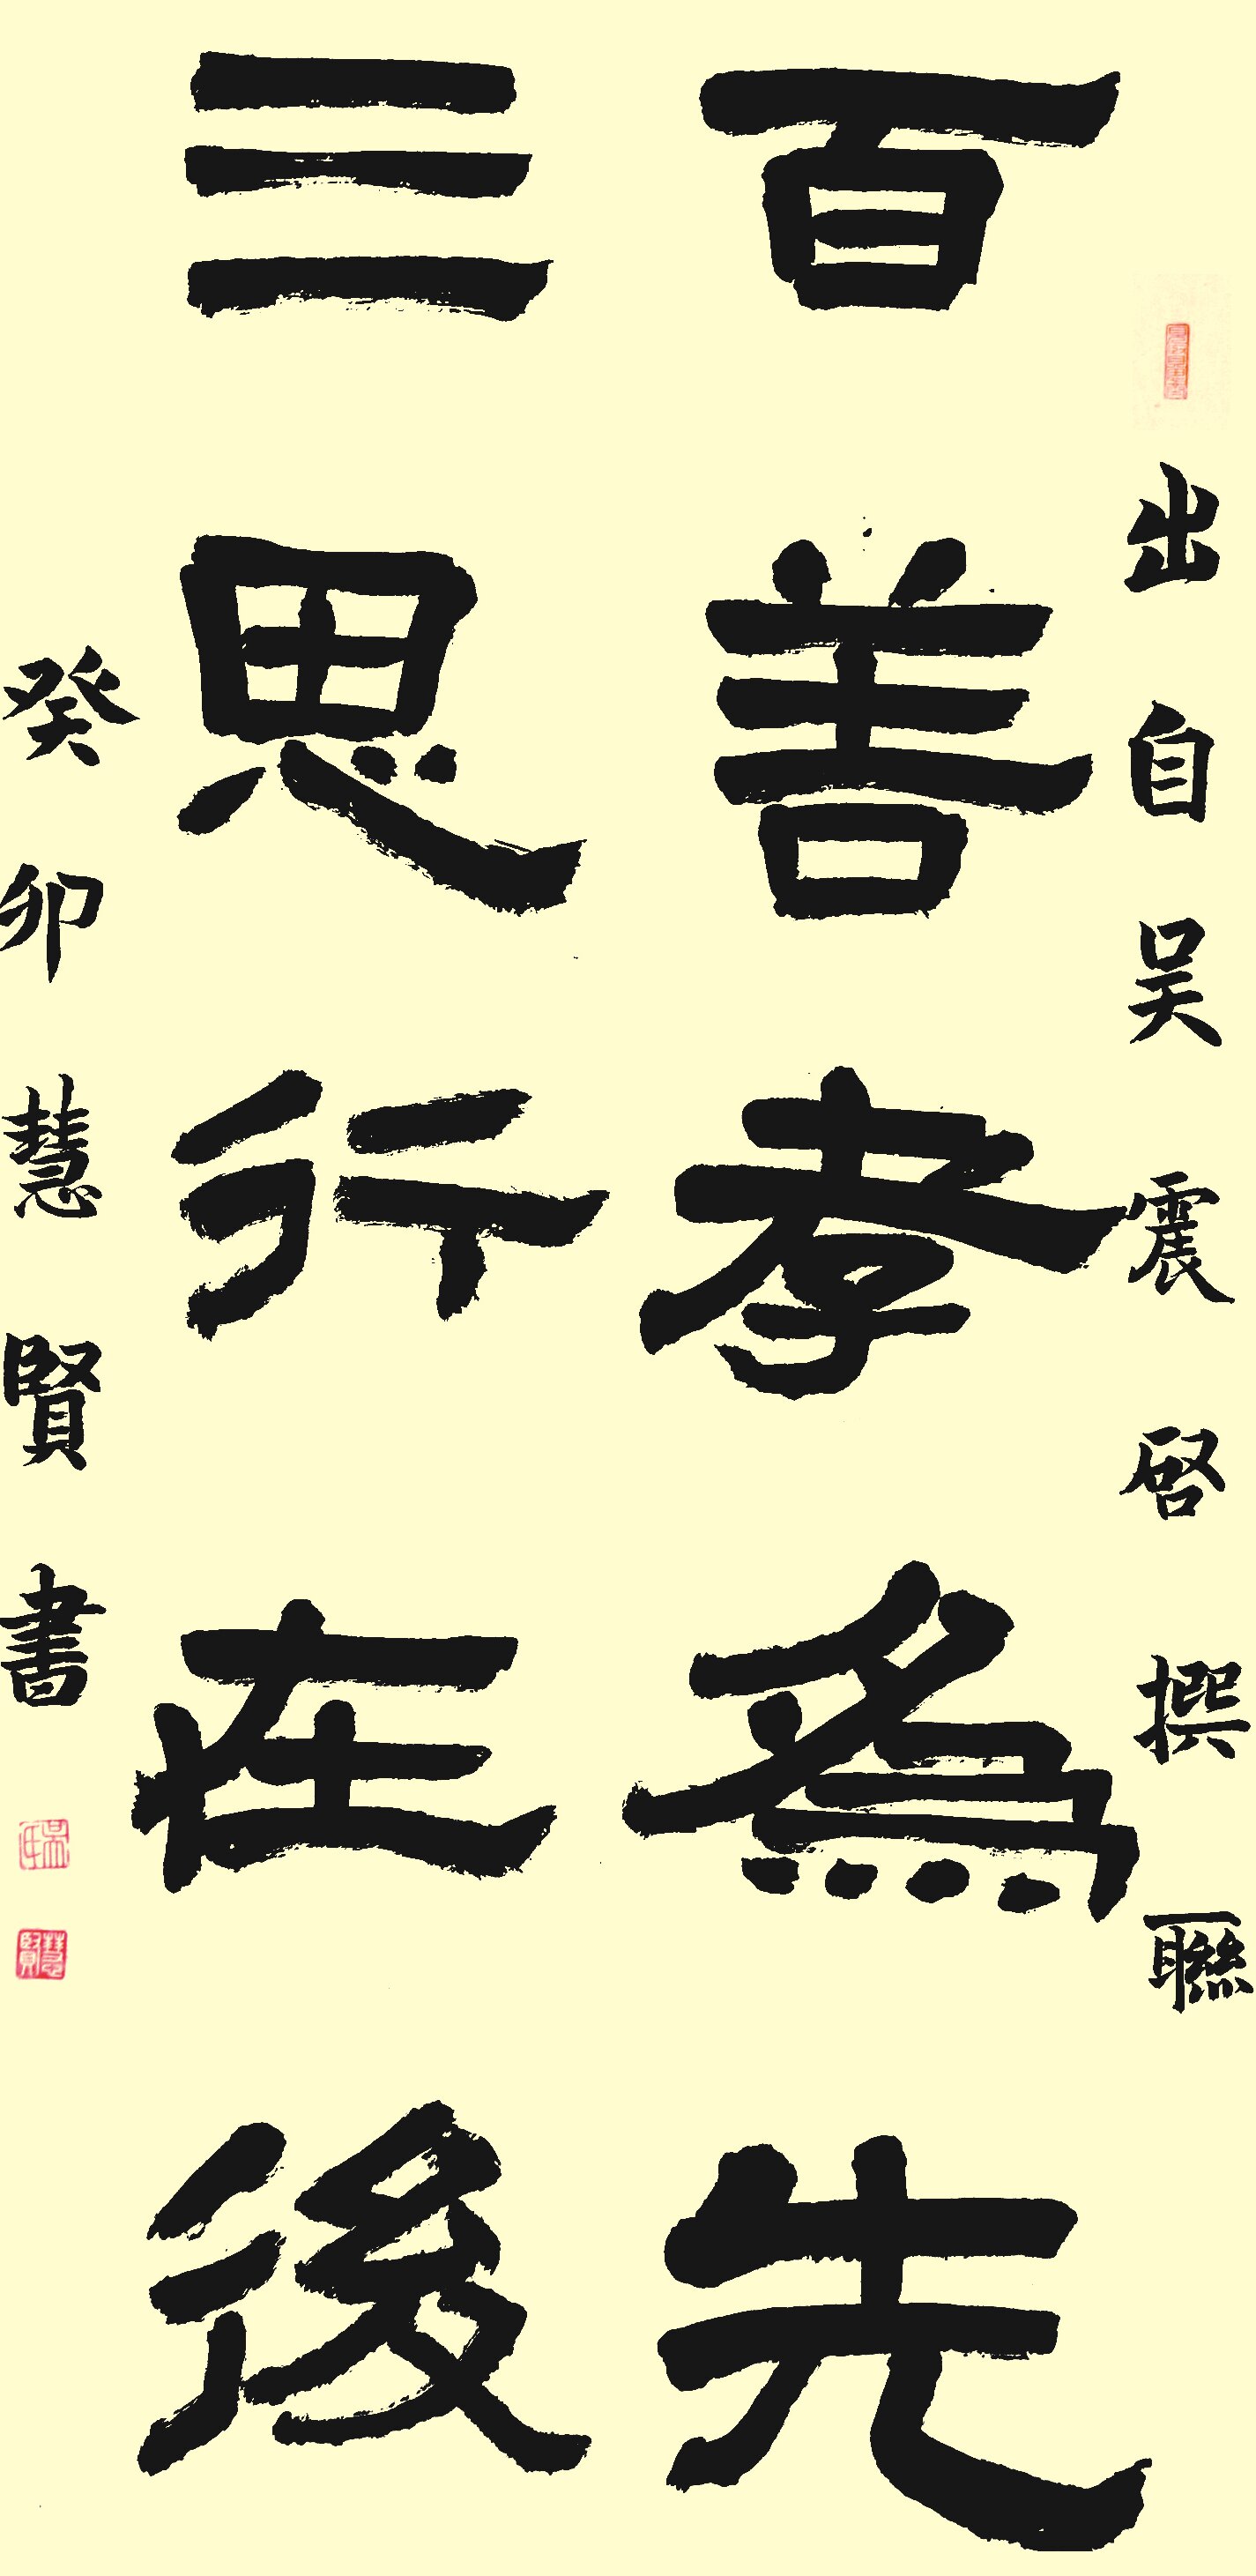 出自吴震啓撰聯
百善孝為先
三思行在後
癸卯慧賢書
慧賢